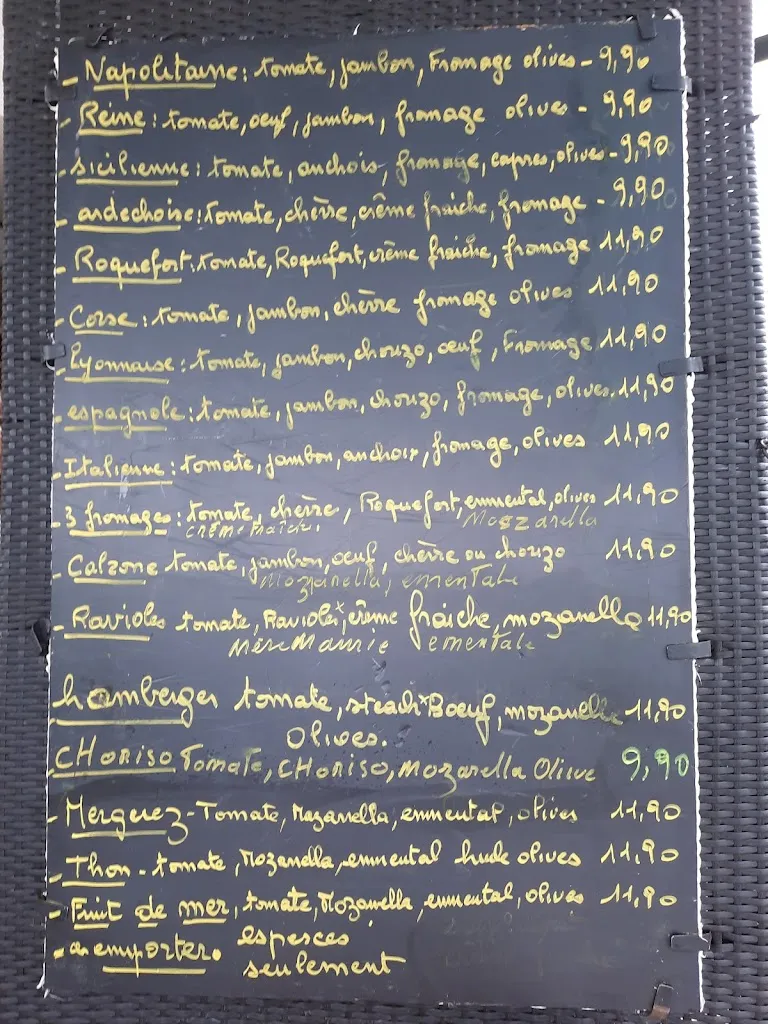 - Napolitaine: tomate, jambon, Fromage olives - 9,90
- Reine: tomate, oeuf, jambon, fromage olives - 9,90
- Sicilienne: tomate, anchois, fromage, capres, olives - 9,90
- ardechoise: tomate, chèvre, crème fraiche, fromage - 9,90
- Roquefort: tomate, Roquefort, crème fraiche, fromage 11,90
- Corse: tomate, jambon, chèvre fromage olives 11,90
- Lyonnaise: tomate, jambon, chorizo, oeuf, Fromage 11,90
- espagnole: tomate, jambon, chorizo, fromage, olives. 11,90
- Italienne: tomate, jambon, anchois, fromage, olives 11,90
- 3 fromages: tomate, chèvre, Roquefort, emmental, olives 11,90
crème fraiche. Mozzarella
- Calzone tomate, jambon, oeuf, chèvre ou chorizo 11,90
Mozzarella, ementale
- Ravioles tomate, Ravioles*, crème fraîche, mozanella 11,90
Mère Maurie ementale
hamberger tomate, steack*Boeuf, mozanella 11,90
Olives.
CHORISO Tomate, CHORISO, Mozarella Olive 9,90
- Merguez - Tomate, Mozanella, emmental, olives 11,90
- Thon - tomate, Mozanella, emmental huile olives 11,90
- Fruit de mer, tomate, Mozanella, emmental, olives 11,90
- a emporter. espesces
seulement